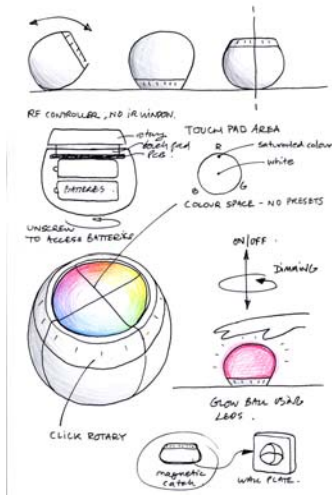 RF CONTROLLER, NO IR WINDOW.
rotary
touch pad
PCB.
BATTERIES.
UNSCREW
TO ACCESS BATTERIES
TOUCH PAD AREA
R
saturated colour
white
B
G
COLOUR SPACE - NO PRESETS
ON/OFF.
DIMMING
GLOW BALL USING
LEDS.
CLICK ROTARY
magnetic
catch
WALL PLATE.